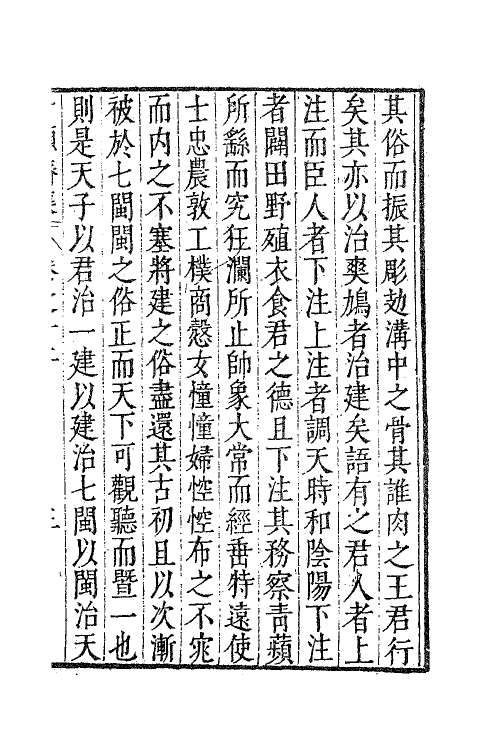 其俗而振其彫攰溝中之骨其誰肉之王君行
矣其亦以治爽鳩者治建矣語有之君人者上
注而臣人者下注上注者調天時和陰陽下注
者闢田野殖衣食君之德且下注其務察靑蘋
所繇而究狂瀾所止帥象大常而經垂特遠使
士忠農敦工樸商慤女憧憧婦悾悾布之不窕
而内之不塞將建之俗盡還其古初且以次漸
被於七閩閩之俗正而天下可觀聽而暨一也
則是天子以君治一建以建治七閩以閩治天